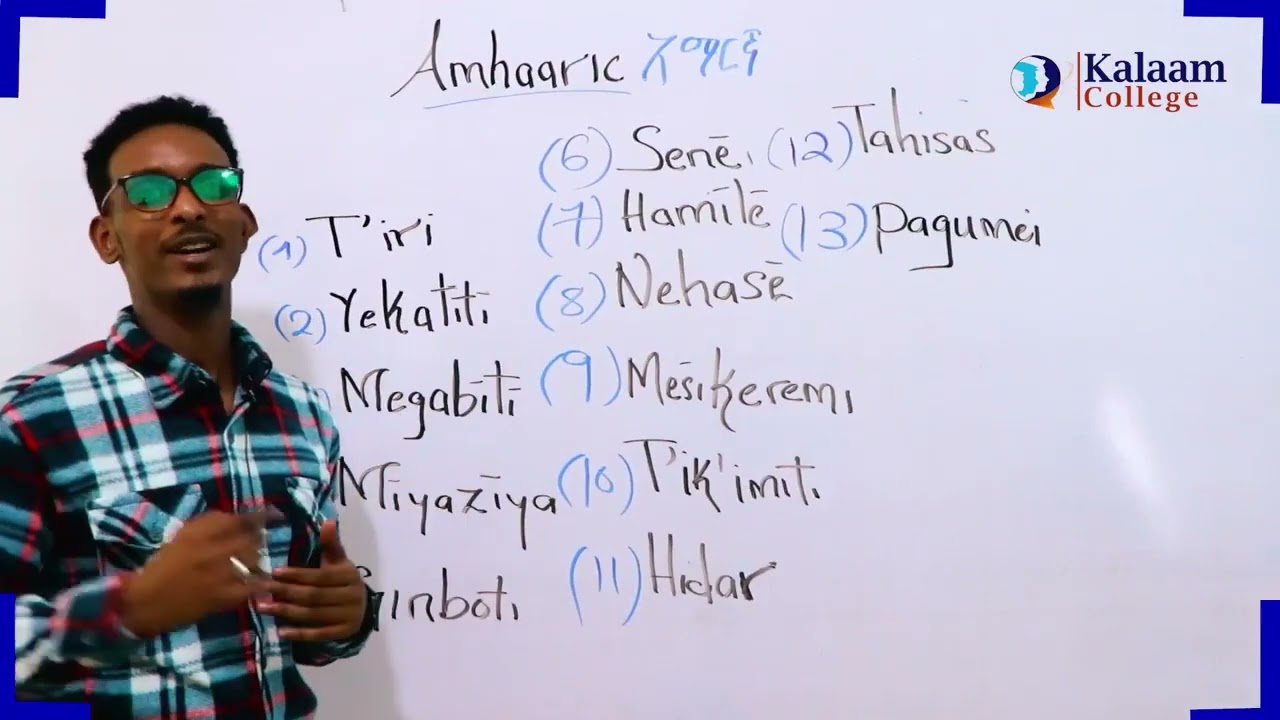 Amhaaric አማርኛ
Kalaam
College
(1) T'iri
(2) Yekatīti
Megabīti
Mīyazīya
Ginboti
(6) Senē
(7) Hamilē
(8) Nehasē
(9) Mesikeremi
(10) T'ik'imiti
(11) Hidar
(12) Tahisas
(13) Pagumei